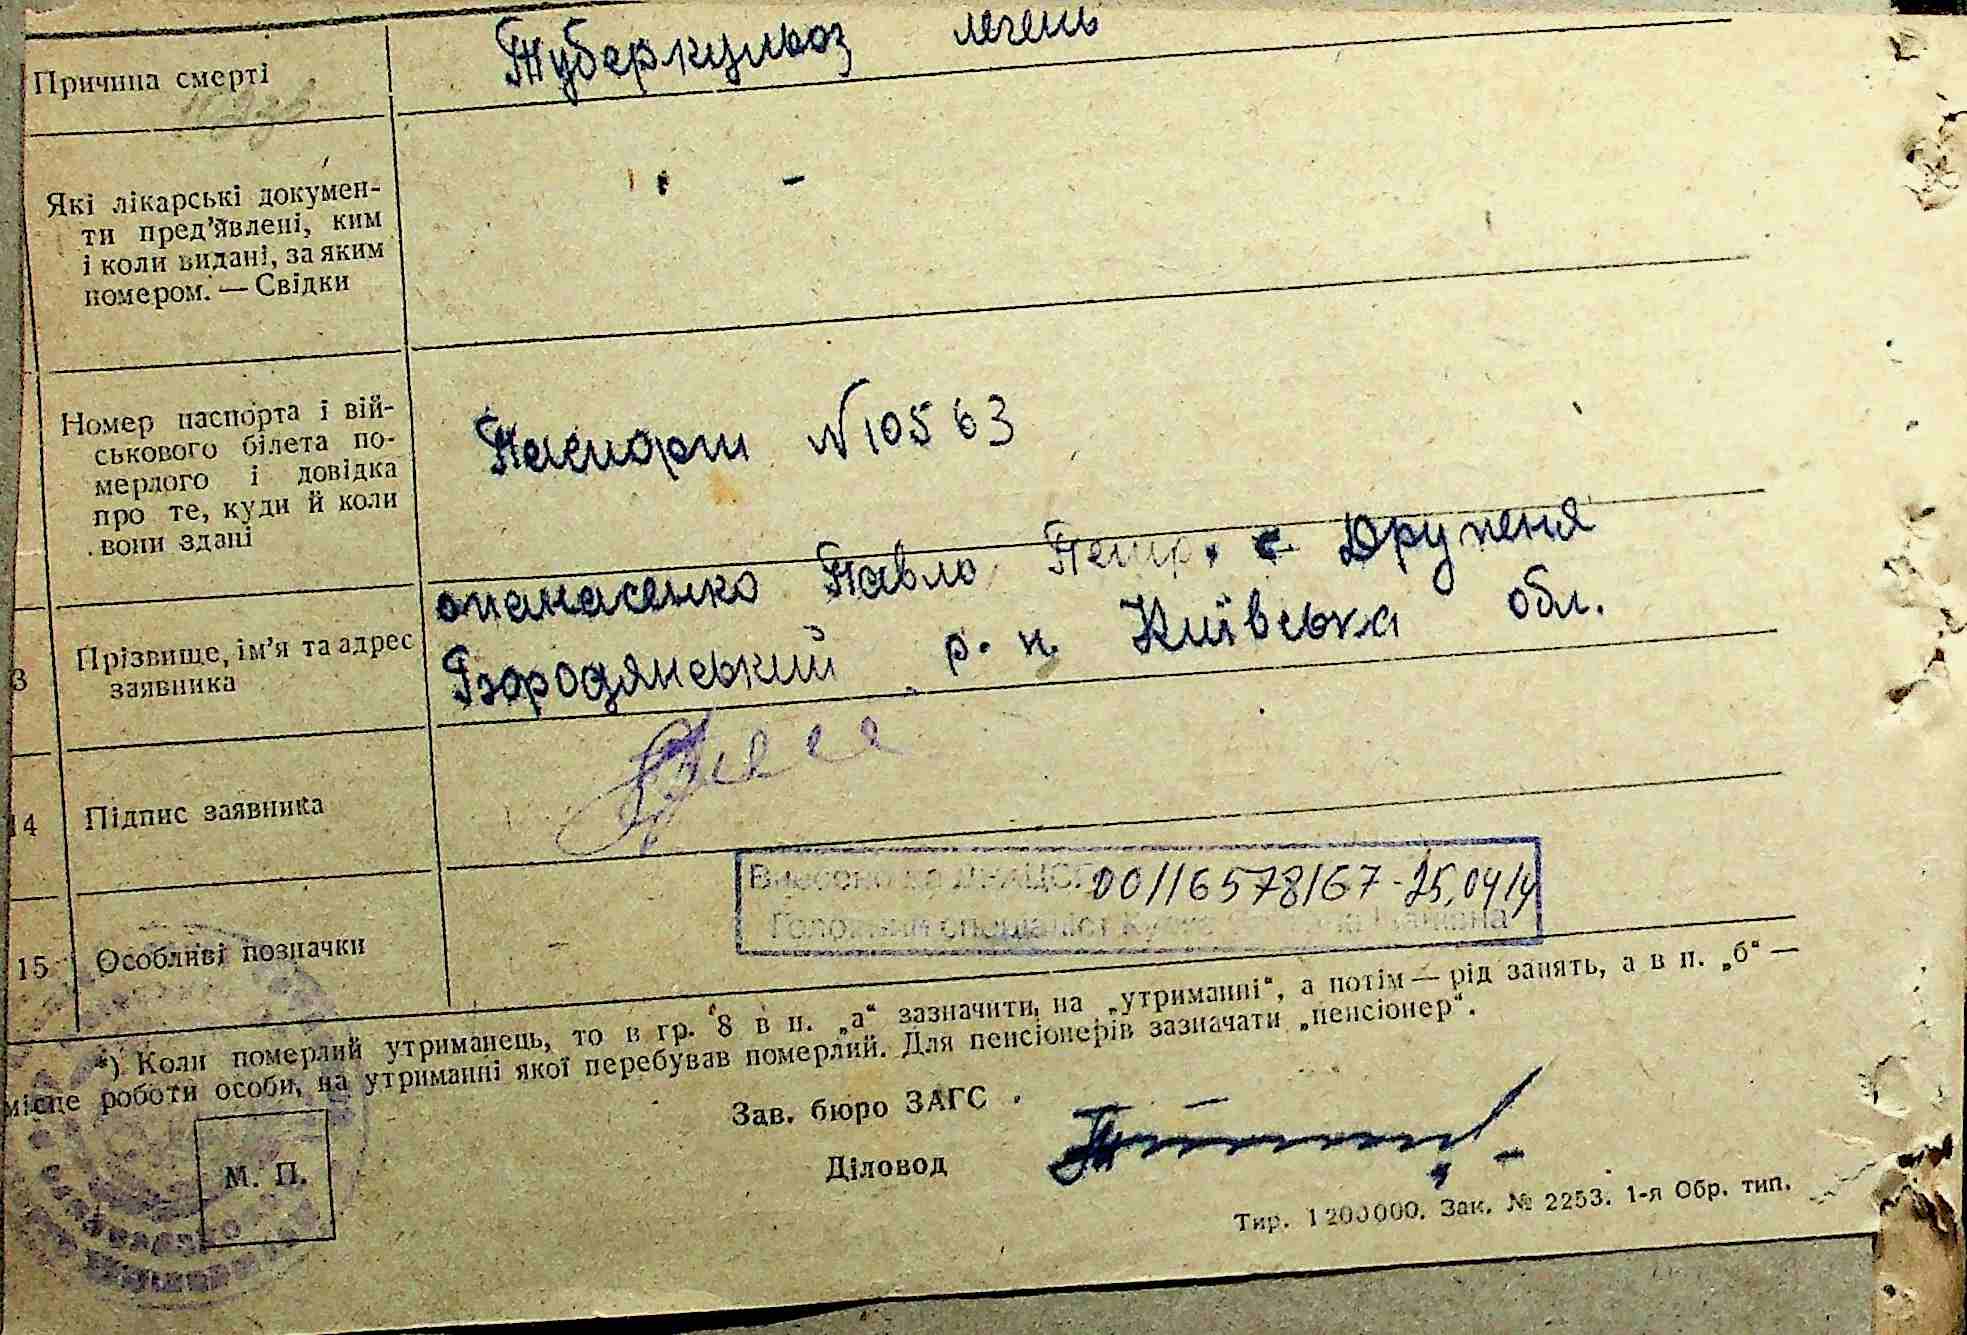 Причина смерті
Туберкульоз легень
Які лікарські докумен-
ти пред'явлені, ким
і коли видані, за яким
номером. — Свідки
-
Номер паспорта і вій-
ськового білета по-
мерлого і довідка
про те, куди й коли
вони здані
Паспорт №10563
3
Прізвище, ім'я та адрес
заявника
опанасенко Павло Петр. с. Друженя
Бородянський р. н. Київська обл.
14
Підпис заявника
15
Особливі позначки
-
00116578167-25,04
Головний спеціаліст
*) Коли померлий утриманець, то в гр. 8 в п. „а“ зазначити, на „утриманні“, а потім — рід занять, а в п. „б“ —
місце роботи особи, на утриманні якої перебував померлий. Для пенсіонерів зазначати „пенсіонер“.
Зав. бюро ЗАГС
Діловод
М. П.
Тир. 1200000. Зак. № 2253. 1-я Обр. тип.